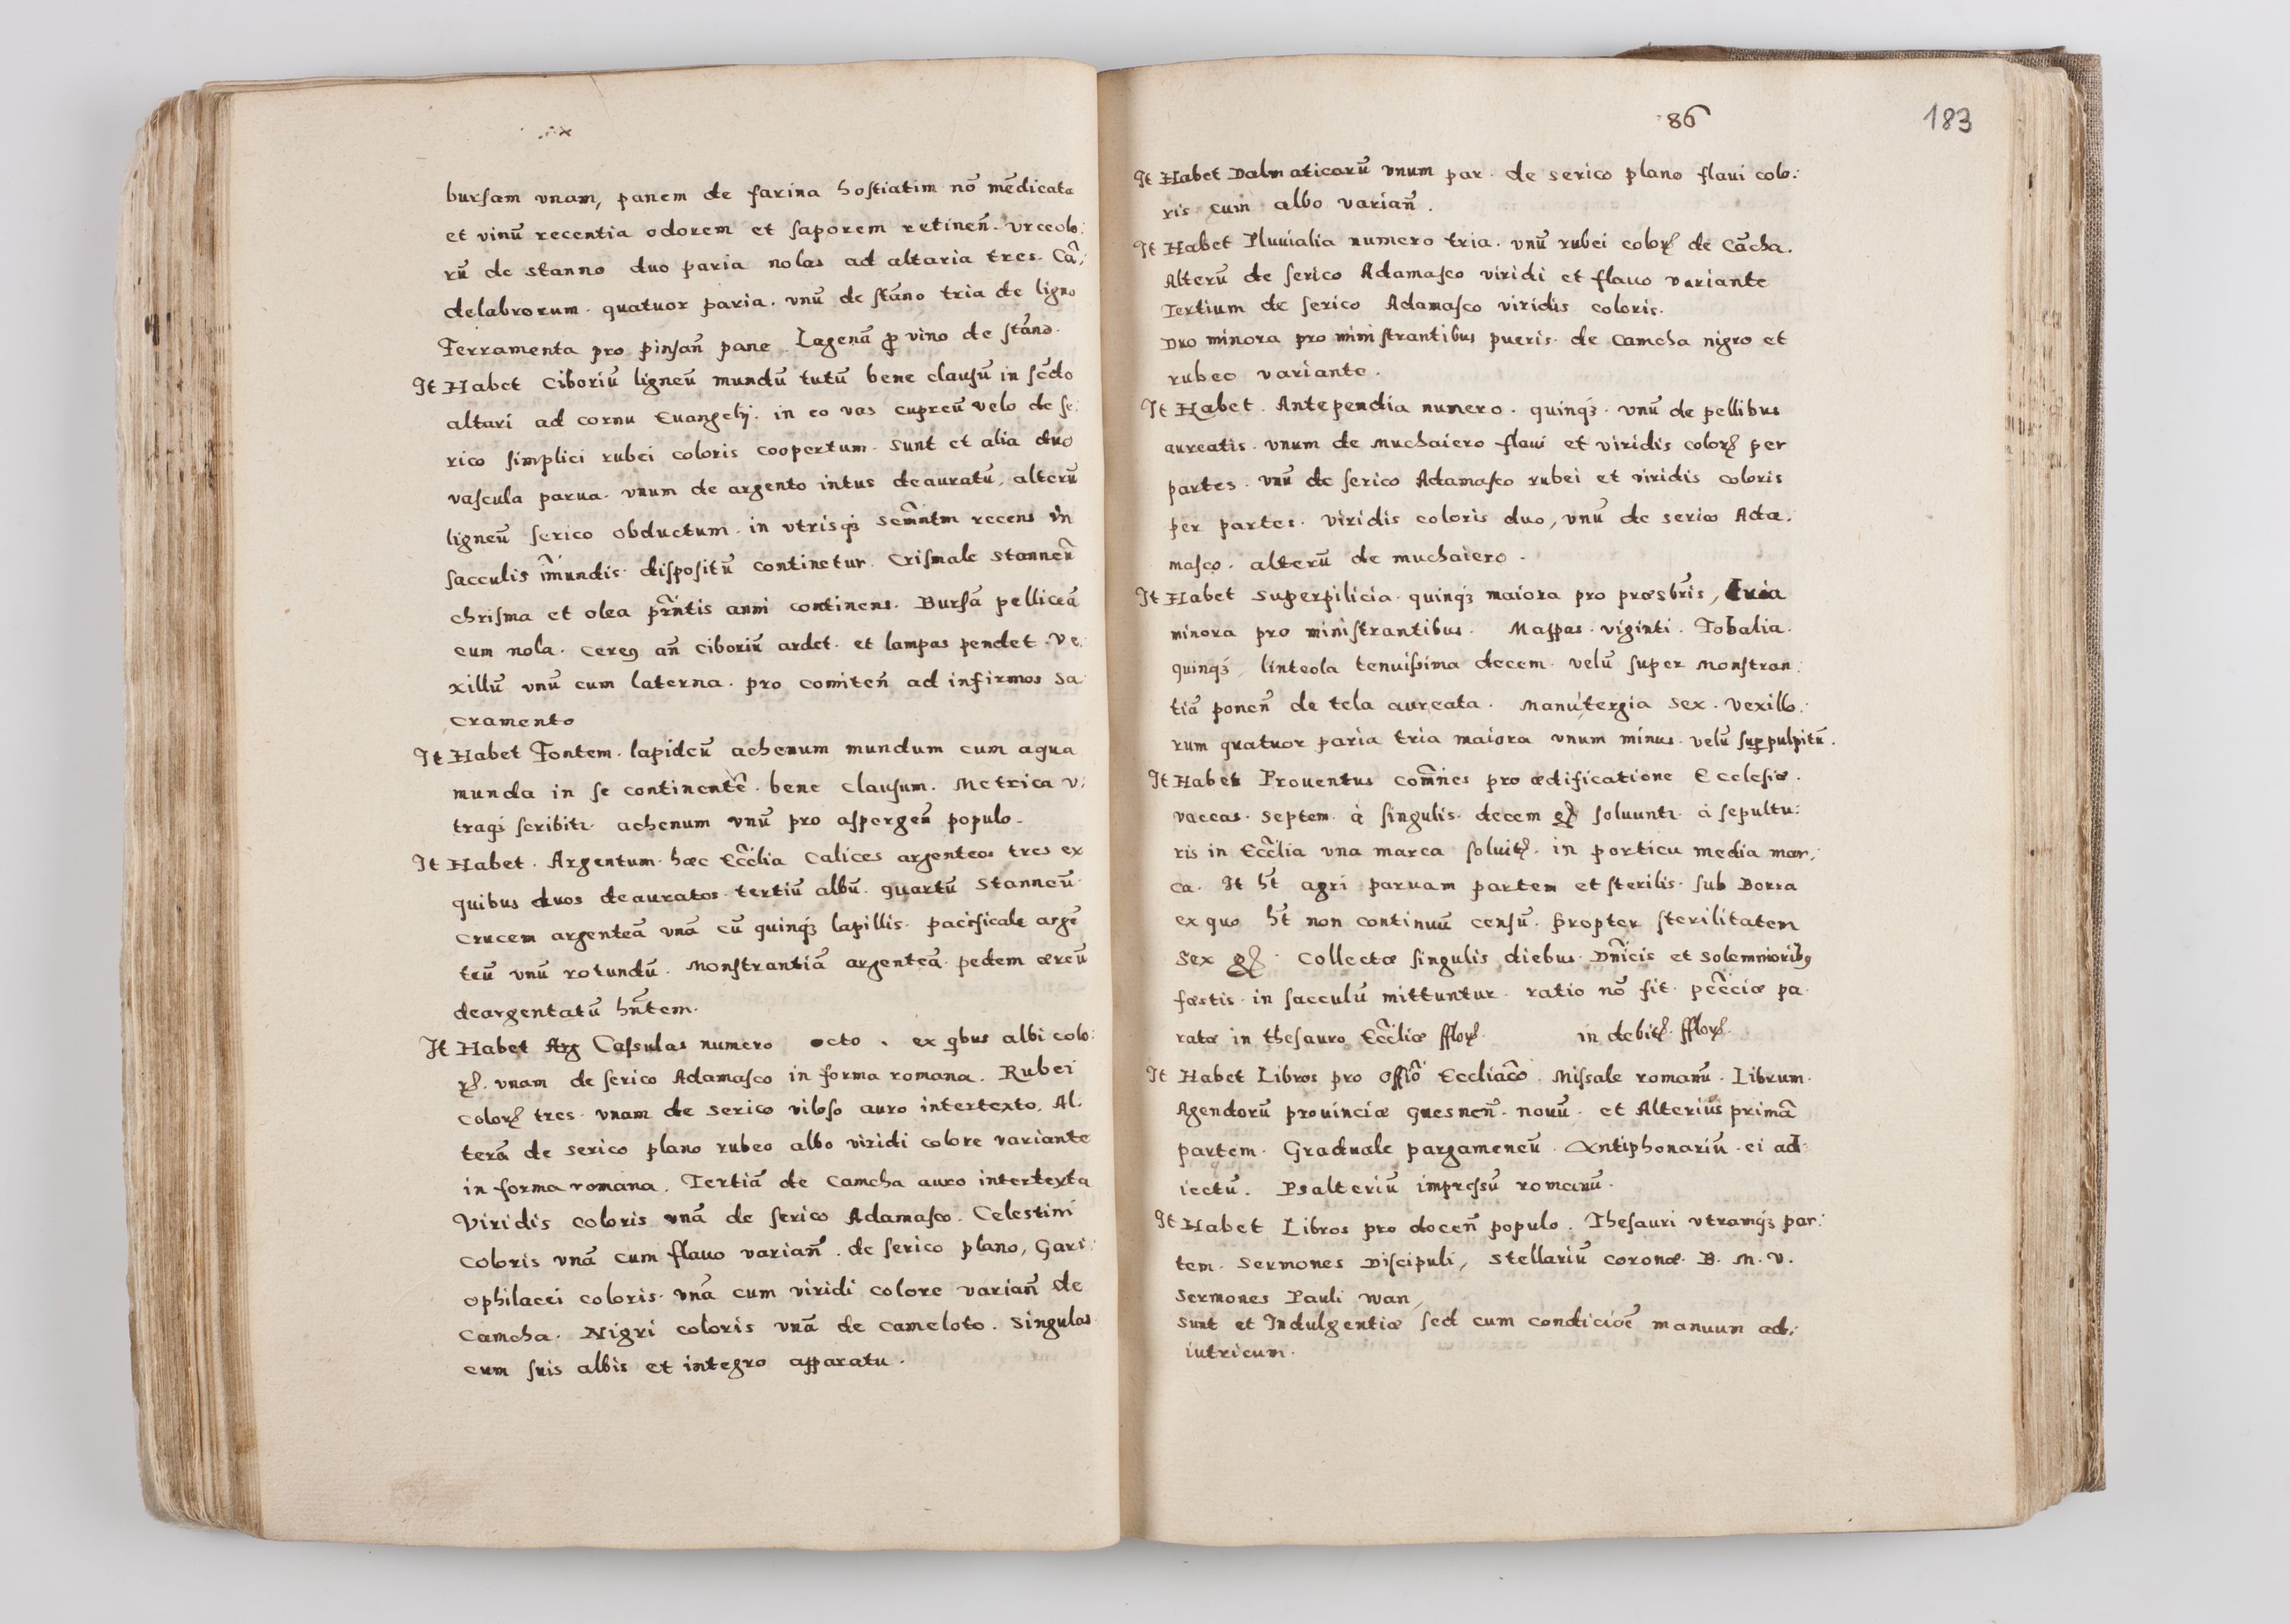 bursam vnam, panem de farina hostiatim nō mēdicata
et vinū recentia odorem et saporem retineñ. vrceolo:
rū de stanno duo paria nolas ad altaria tres. Cā:
delabrorum. quatuor paria. vnū de stāno tria de ligno
Ferramenta pro pinsañ pane. Lagenā ꝓ vino de stāno.
It Habet Ciboriū ligneū mundū tutū bene clausū in scdo
altari ad cornu Euangelij. in eo vas cupreū velo de se:
rico simplici rubei coloris coopertum. Sunt et alia duo
vascula parua. vnum de argento intus deauratū, alterū
ligneū serico obductum. in vtrisqꝫ Semntm recens in
sacculis mundis dispositū continetur. Crismale stanneū
chrisma et olea prntis anni continens. Bursā pelliceā
cum nola. Cereꝰ añ Ciboriū ardet. et lampas pendet. Ve:
xillū vnū cum laterna. pro comiteñ ad infirmos Sa:
cramento
It Habet Fontem. lapideū achenum mundum cum aqua
munda in se continentē. bene clausum. Metrica v:
traqꝫ scribitr. achenum vnū pro aspergeñ populo.
It Habet. Argentum. hæc Eccłia Calices argenteos tres ex
quibus duos deauratos. tertiū albū. quartū stanneū.
Crucem argenteā vnā cū quinqꝫ lapillis. pacificale argē
teū vnū rotundū. Monstrantiā argenteā. pedem æreū
deargentatū hñtem.
It Habet Arg Casulas numero octo. ex qbus albi colo:
rꝭ. vnam de serico Adamasco in forma romana. Rubei
Colorꝭ tres. vnam de serico viloso auro intertexto. Al:
terā de serico plano rubeo albo viridi colore variante
in forma romana. Tertiā de Camcha auro intertexta
Viridis coloris vnā de serico Adamasco. Celestini
Coloris vnā cum flauo variañ. de serico plano, Gari:
ophilacei coloris. vnā cum viridi colore variañ de
Camcha. Nigri coloris vnā de Cameloto. Singulas
cum suis albis et integro apparatu.
86
183
It Habet Dalmaticarū vnum par. de serico plano flaui colo:
ris cum albo variañ.
It Habet Pluuialia numero tria. vnū rubei colorꝭ de Cācha.
Alterū de serico Adamasco viridi et flauo variante
Tertium de serico Adamasco viridis coloris.
Duo minora pro ministrantibus pueris. de Camcha nigro et
rubeo variante.
It Habet. Antependia numero. quinqꝫ. vnū de pellibus
aureatis. vnum de Muchaiero flaui et viridis colorꝭ per
partes. vnū de serico Adamasco rubei et viridis coloris
per partes. viridis coloris duo, vnū de serico Ada:
masco. alterū de muchaiero.
It Habet Superpilicia. quinqꝫ maiora pro præsbris, tria
minora pro ministrantibus. Mappas. viginti. Tobalia.
quinqꝫ, linteola tenuissima decem. velū super Monstran:
tiā poneñ de tela aureata. Manutergia sex. Vexillo:
rum quatuor paria tria maiora vnum minus. velū suꝑ pulpitū.
It Habet Prouentus comnes pro ædificatione Ecclesiæ.
vaccas. Septem. à singulis. decem gꝭ soluuntr. à sepultu:
ris in Eccłia vna marca soluitꝭ. in porticu media mar:
ca. It ht agri paruam partem et sterilis. sub Borra
ex quo ht non continuū censū. Propter sterilitatem
Sex gꝭ. Collectæ singulis diebus. Dnicis et Solemnioribꝰ
fæstis. in sacculū mittuntur. ratio nō fit. pecciæ pa:
ratæ in thesauro Eccłiæ fflorꝭ. in debitꝭ. fflorꝭ.
It Habet Libros pro offio Eccliaco. Missale romanū. Librum.
Agendorū prouinciæ gnesneñ. nouū. et Alterius primā
partem. Graduale pargameneū. Antiphonariū. ei ad:
iectū. Psalteriū impressū romanū.
It Habet Libros pro doceñ populo. Thesauri vtramqꝫ par:
tem. Sermones Discipuli, Stellariū coronæ. B. M. V.
Sermones Pauli wan,
Sunt et Indulgentiæ sed cum condicioē manuum ad:
iutricum.